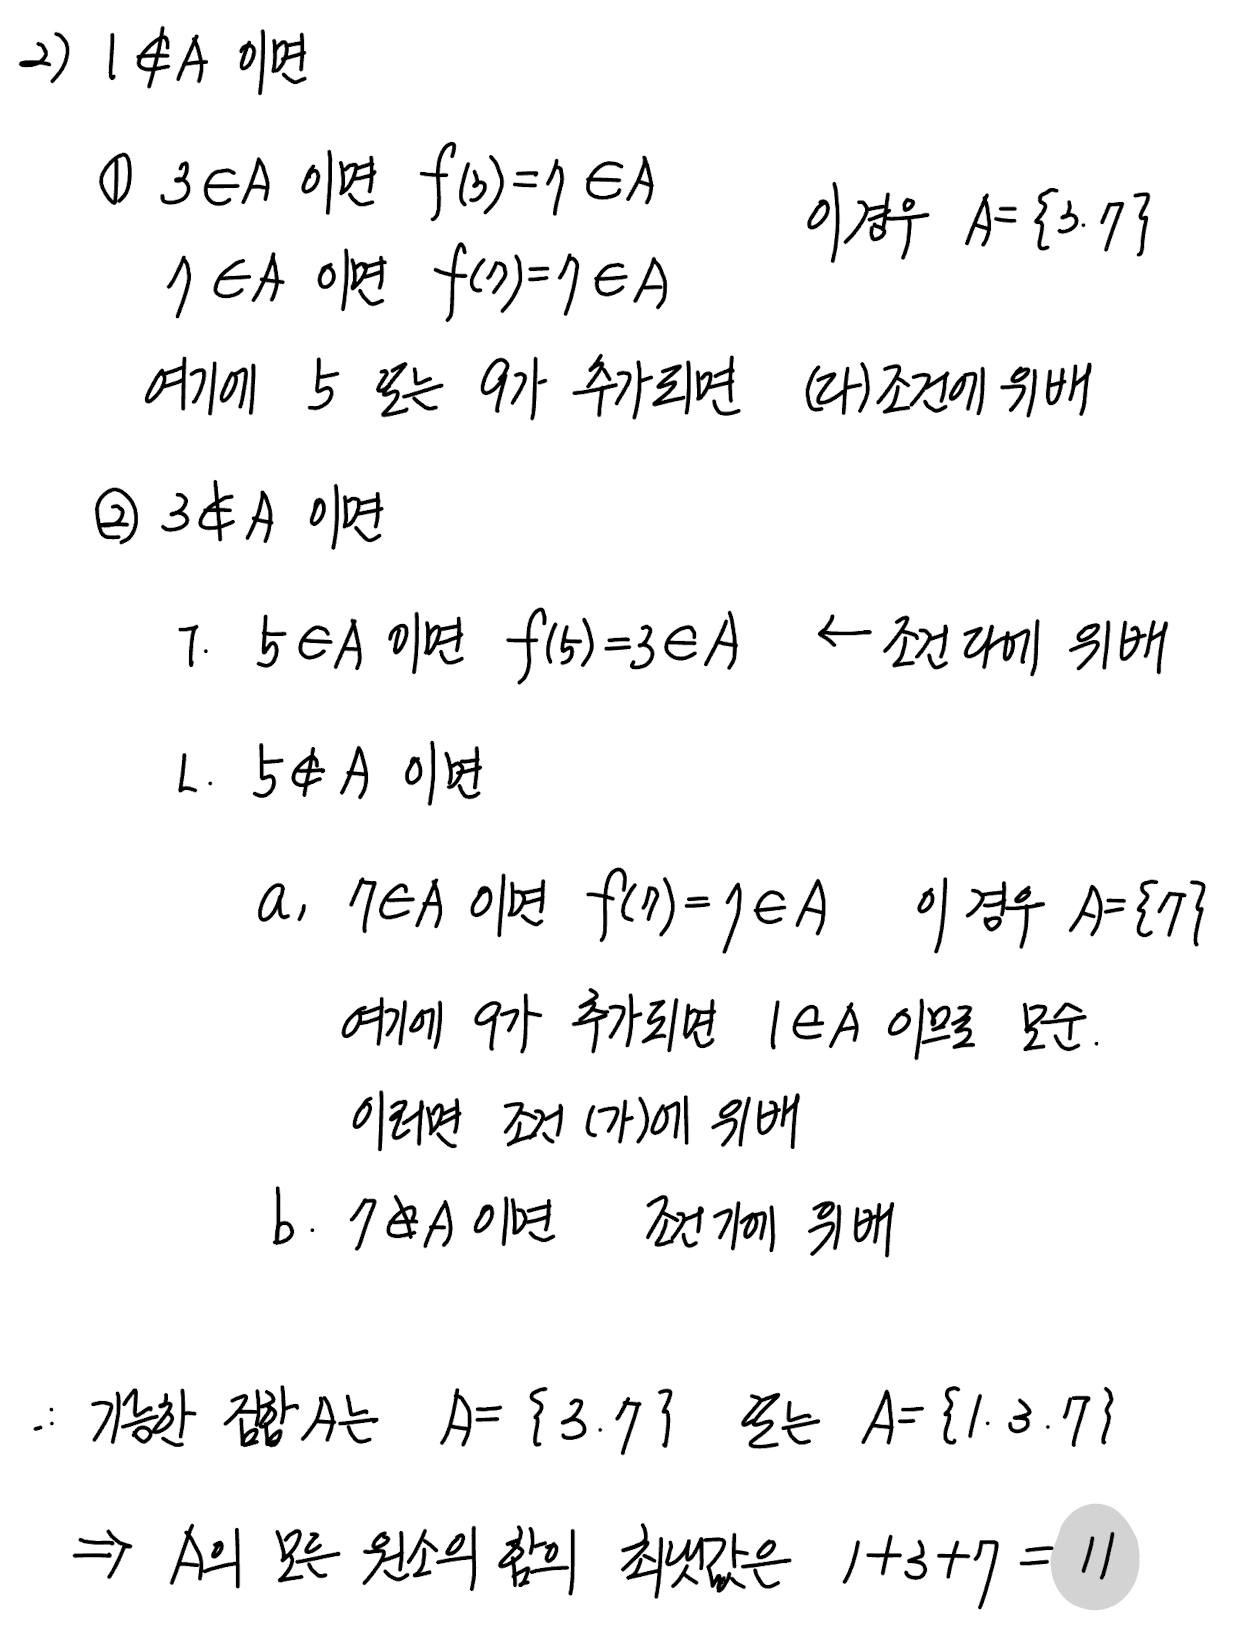 2) 1∉A 이면
① 3∈A 이면 f(3)=7∈A
이경우 A={3.7}
7∈A 이면 f(7)=7∈A
여기에 5 또는 9가 추가되면 (다)조건에 위배
② 3∉A 이면
ㄱ. 5∈A 이면 f(5)=3∈A ← 조건 다에 위배
ㄴ. 5∉A 이면
a. 7∈A 이면 f(7)=7∈A 이 경우 A={7}
여기에 9가 추가되면 1∈A 이므로 모순.
이러면 조건 (가)에 위배
b. 7∉A 이면 조건 가에 위배
∴ 가능한 집합 A는 A={3.7} 또는 A={1.3.7}
⇒ A의 모든 원소의 합의 최댓값은 1+3+7=11